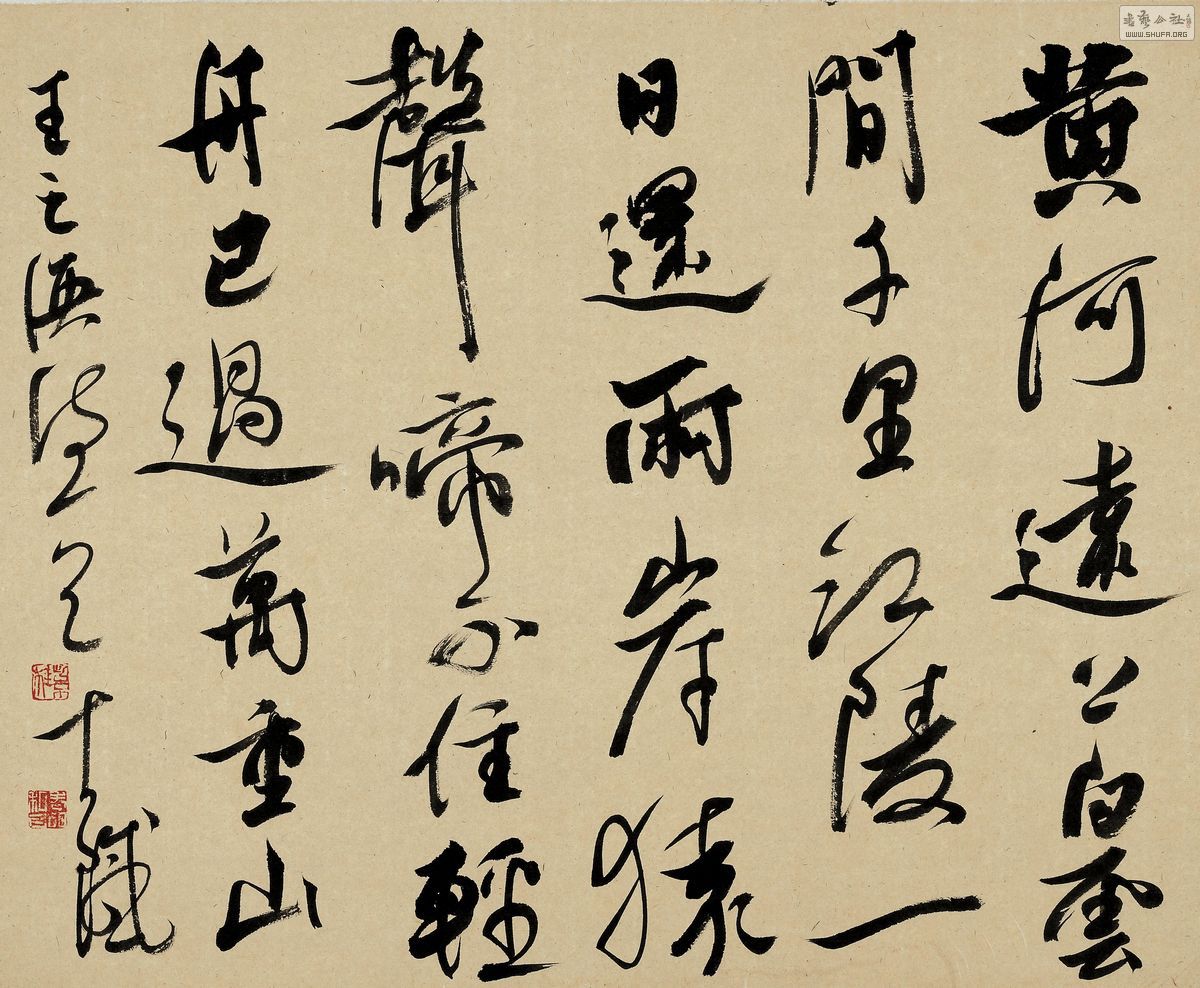 書藝公社
WWW.SHUFA.ORG
黄河遠上白雲
間千里江陵一
日還兩岸猿
聲啼不住輕
舟已過萬重山
王之